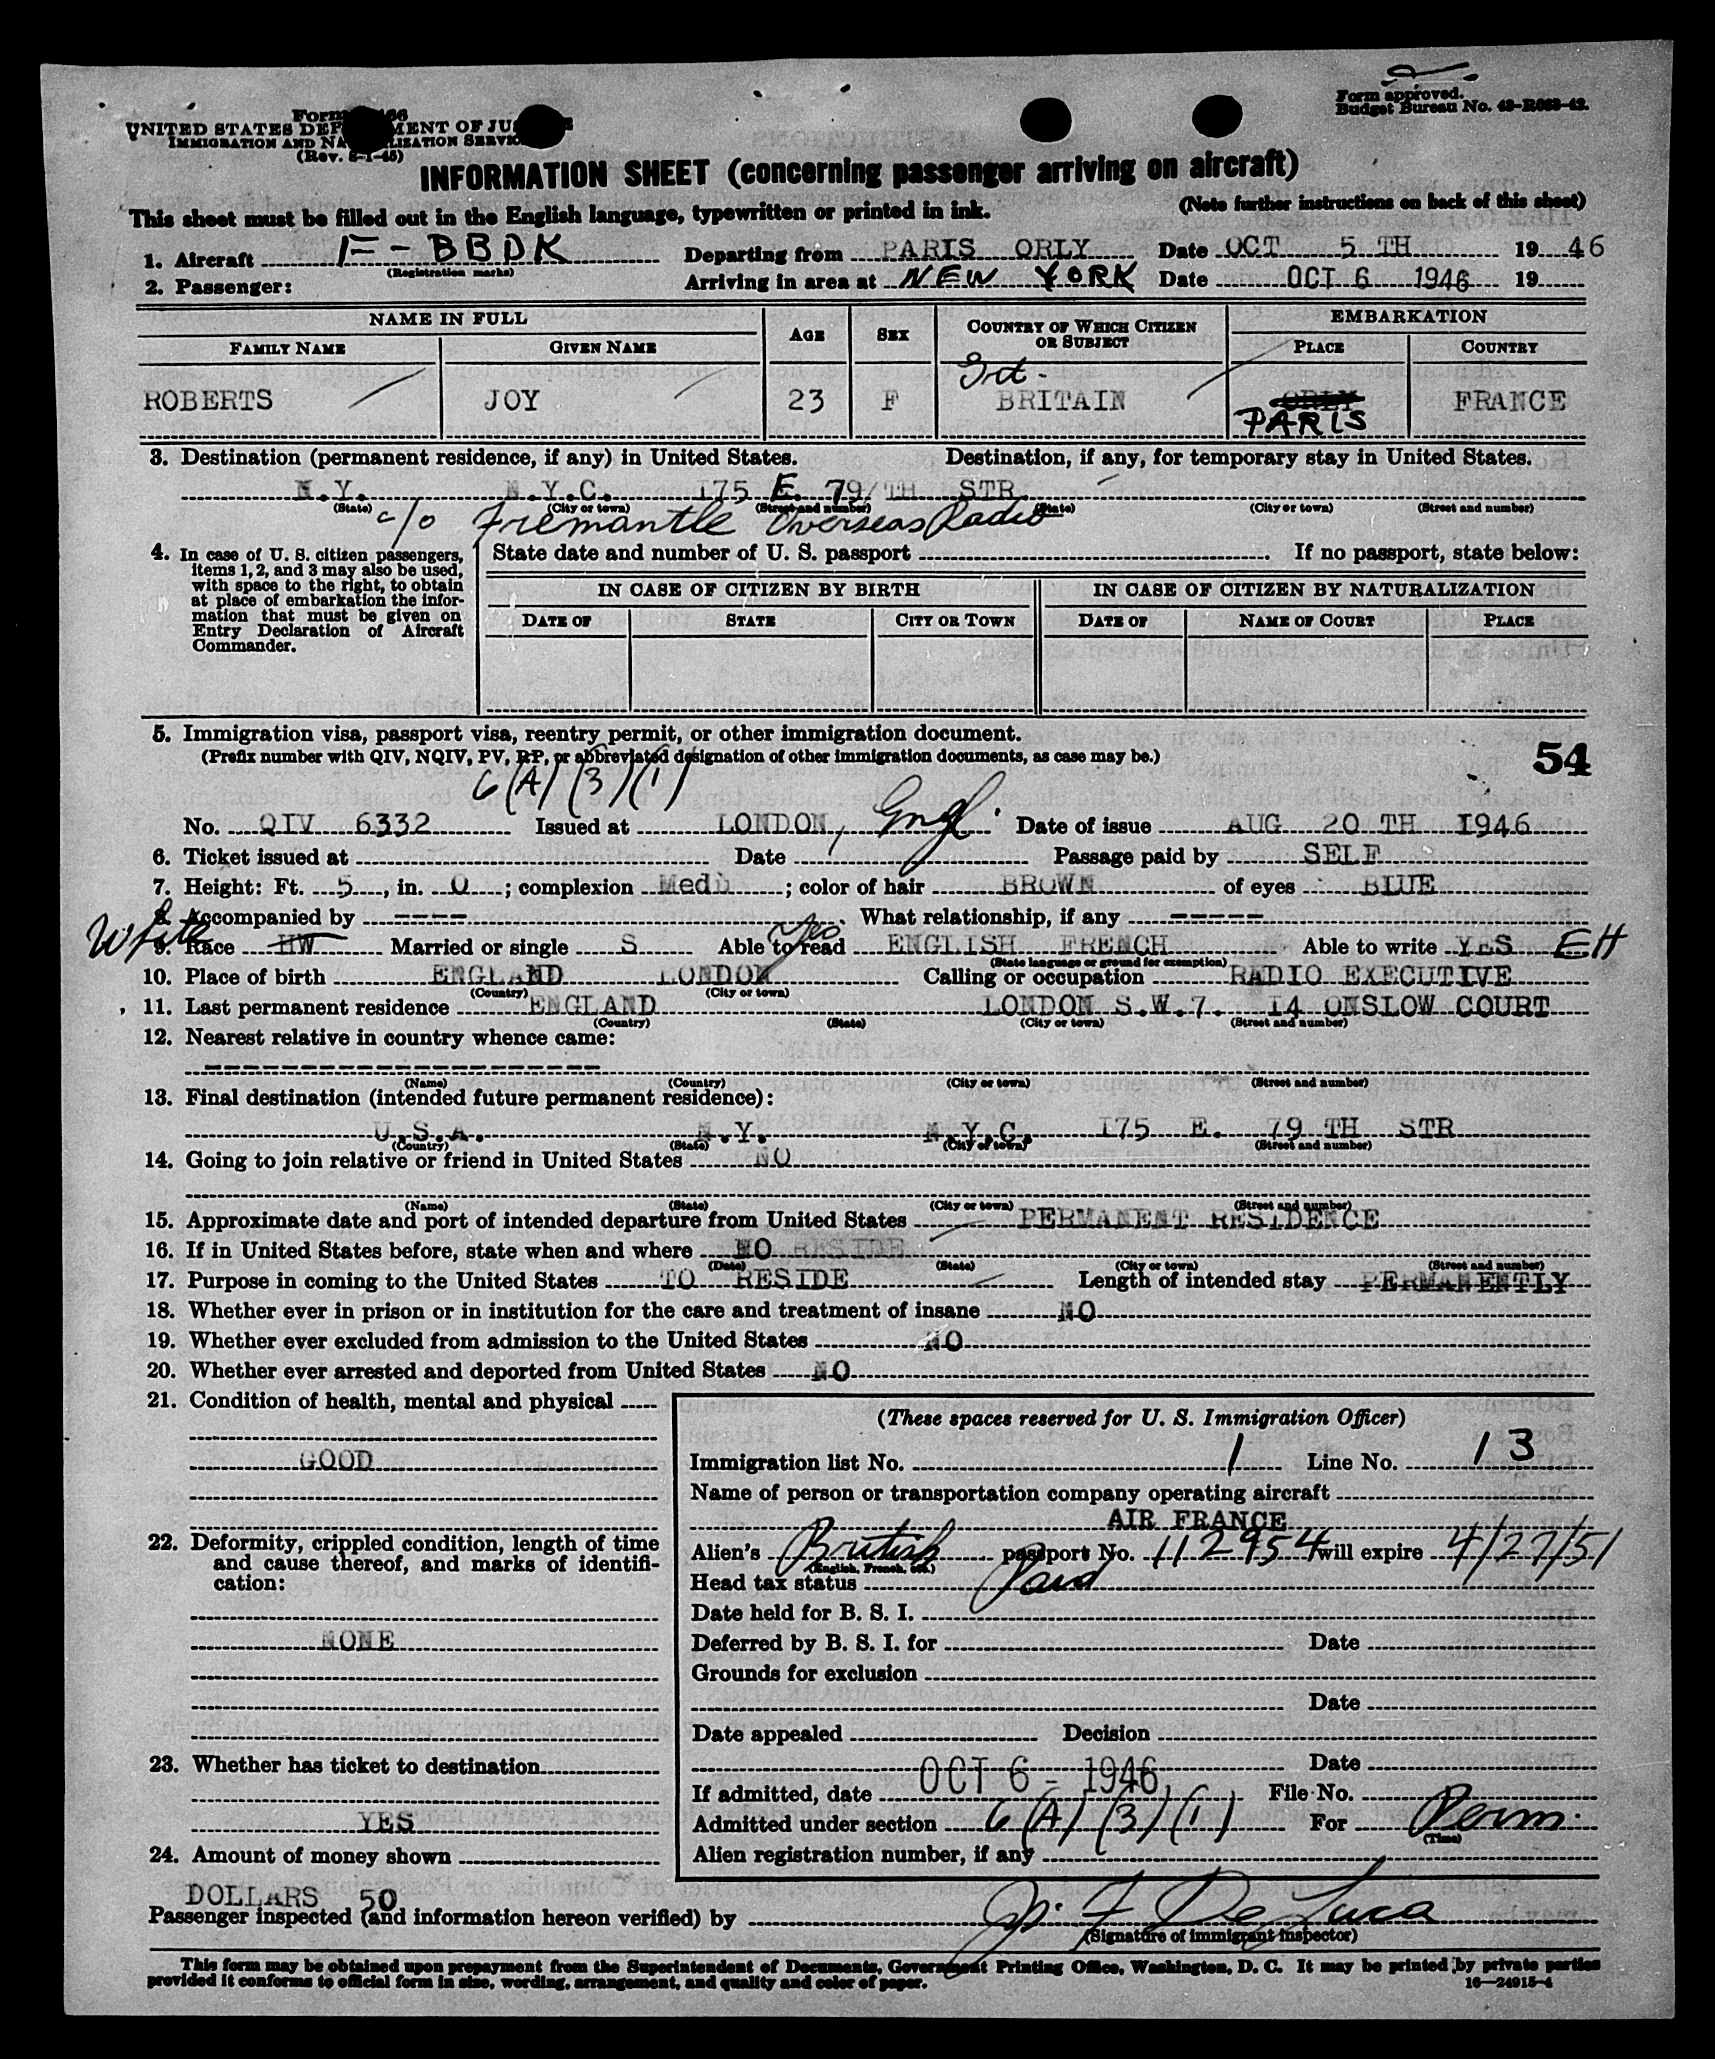 Form approved.
Budget Bureau No. 43-R063-42.
UNITED STATES DEPARTMENT OF JUSTICE
IMMIGRATION AND NATURALIZATION SERVICE
INFORMATION SHEET (concerning passenger arriving on aircraft)
This sheet must be filled out in the English language, typewritten or printed in ink. (Note further instructions on back of this sheet)
1. Aircraft F-BBDK Departing from PARIS ORLY Date OCT 5 TH 19 46
(Registration marks)
2. Passenger: Arriving in area at NEW YORK Date OCT 6 1946 19
NAME IN FULL AGE SEX COUNTRY OF WHICH CITIZEN OR SUBJECT EMBARKATION
FAMILY NAME GIVEN NAME PLACE COUNTRY
Grt.
ROBERTS JOY 23 F BRITAIN ORLY FRANCE
PARIS
3. Destination (permanent residence, if any) in United States. Destination, if any, for temporary stay in United States.
N.Y. N.Y.C. 175 E. 79/TH STR.
(State) (City or town) (Street and number) (State) (City or town) (Street and number)
c/o Fremantle Overseas Radio
4. In case of U. S. citizen passengers, items 1, 2, and 3 may also be used, with space to the right, to obtain at place of embarkation the information that must be given on Entry Declaration of Aircraft Commander.
State date and number of U. S. passport . If no passport, state below:
IN CASE OF CITIZEN BY BIRTH IN CASE OF CITIZEN BY NATURALIZATION
DATE OF STATE CITY OR TOWN DATE OF NAME OF COURT PLACE
5. Immigration visa, passport visa, reentry permit, or other immigration document.
(Prefix number with QIV, NQIV, PV, RP, or abbreviated designation of other immigration documents, as case may be.)
54
6(A)(3)(1)
No. QIV 6332 Issued at LONDON, Engl. Date of issue AUG 20 TH 1946
6. Ticket issued at Date Passage paid by SELF
7. Height: Ft. 5, in. 0; complexion Medu; color of hair BROWN of eyes BLUE
8. Accompanied by ---- . What relationship, if any -----
White Yes
9. Race HW Married or single S Able to read ENGLISH FRENCH Able to write YES EH
(State language or ground for exemption)
10. Place of birth ENGLAND LONDON Calling or occupation RADIO EXECUTIVE
(Country) (City or town)
11. Last permanent residence ENGLAND LONDON S.W.7. 14 ONSLOW COURT
(Country) (State) (City or town) (Street and number)
12. Nearest relative in country whence came:
--------------------
(Name) (Country) (City or town) (Street and number)
13. Final destination (intended future permanent residence):
U.S.A. N.Y. N.Y.C. 175 E. 79 TH STR
(Country) (State) (City or town) (Street and number)
14. Going to join relative or friend in United States NO
(Name) (State) (City or town) (Street and number)
15. Approximate date and port of intended departure from United States PERMANENT RESIDENCE
16. If in United States before, state when and where NO RESIDE
(Date) (State) (City or town) (Street and number)
17. Purpose in coming to the United States TO RESIDE Length of intended stay PERMANENTLY
18. Whether ever in prison or in institution for the care and treatment of insane NO
19. Whether ever excluded from admission to the United States NO
20. Whether ever arrested and deported from United States NO
21. Condition of health, mental and physical
GOOD
22. Deformity, crippled condition, length of time and cause thereof, and marks of identification:
NONE
23. Whether has ticket to destination
YES
24. Amount of money shown
DOLLARS 50
(These spaces reserved for U. S. Immigration Officer)
Immigration list No. 1 Line No. 13
Name of person or transportation company operating aircraft
AIR FRANCE
Alien's British passport No. 112954 will expire 4/27/51
(English, French, etc.)
Head tax status Paid
Date held for B. S. I.
Deferred by B. S. I. for Date
Grounds for exclusion
Date
Date appealed Decision
Date
If admitted, date OCT 6 - 1946 File No.
Admitted under section 6(A)(3)(1) For Perm.
(Time)
Alien registration number, if any
Passenger inspected (and information hereon verified) by De Luca
(Signature of immigrant inspector)
This form may be obtained upon prepayment from the Superintendent of Documents, Government Printing Office, Washington, D. C. It may be printed by private parties
provided it conforms to official form in size, wording, arrangement, and quality and color of paper. 16—24915-4